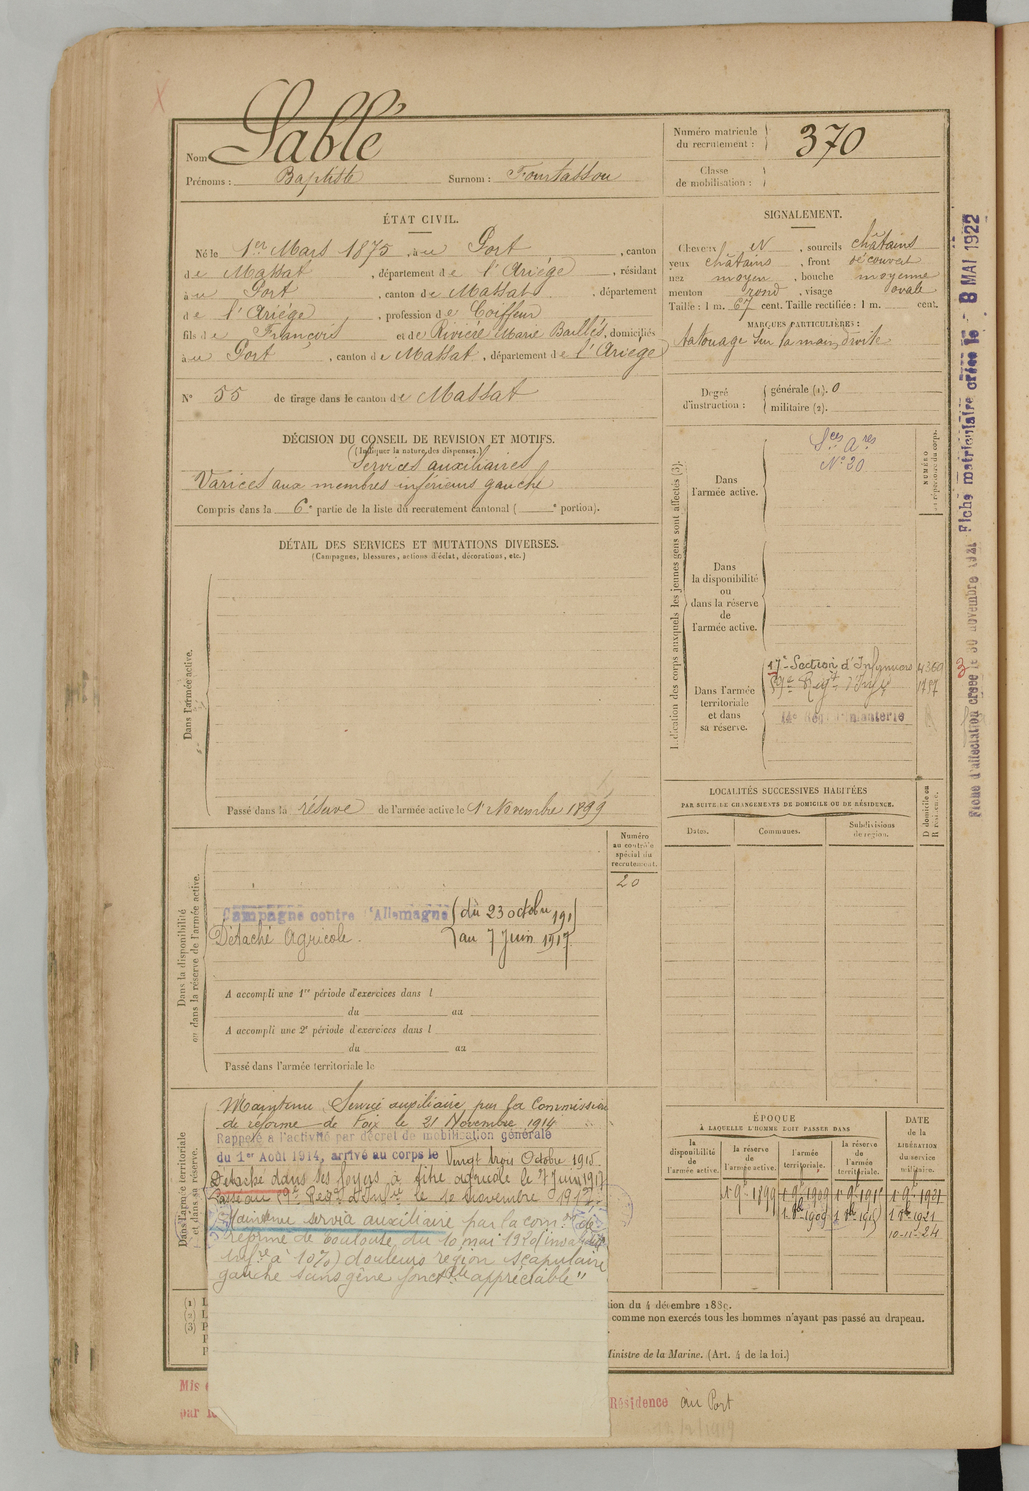 Nom Sablé
Prénoms : Baptiste Surnom : Fourtassou
Numéro matricule du recrutement : 370
Classe de mobilisation :
ÉTAT CIVIL.
Né le 1er Mars 1875, à au Port, canton
de Massat, département de l'Ariége, résidant
à au Port, canton de Massat, département
de l'Ariége, profession de Coiffeur
fils de François et de Rivière Marie Baillés, domiciliés
à au Port, canton de Massat, département de l'Ariége
N° 55 de tirage dans le canton de Massat
SIGNALEMENT.
Cheveux N, sourcils châtains
yeux châtains, front découvert
nez moyen, bouche moyenne
menton rond, visage ovale
Taille : 1 m. 67 cent. Taille rectifiée : 1 m. cent.
MARQUES PARTICULIÈRES :
tatouage sur la main droite
Degré d'instruction : générale (1). 0
militaire (2).
DÉCISION DU CONSEIL DE REVISION ET MOTIFS.
(Indiquer la nature des dispenses.)
Services auxiliaires
Varices aux membres inférieurs gauche
Compris dans la 6e partie de la liste du recrutement cantonal ( e portion).
DÉTAIL DES SERVICES ET MUTATIONS DIVERSES.
(Campagnes, blessures, actions d'éclat, décorations, etc.)
Dans l'armée active.
Passé dans la réserve de l'armée active le 1 Novembre 1899
Indication des corps auxquels les jeunes gens sont affectés (3).
NUMÉRO au répertoire du corps.
Dans l'armée active.
Sces Ares
N° 20
Dans la disponibilité ou dans la réserve de l'armée active.
Dans l'armée territoriale et dans sa réserve.
17e Section d'Infirmiers 4360
LOCALITÉS SUCCESSIVES HABITÉES
PAR SUITE DE CHANGEMENTS DE DOMICILE OU DE RÉSIDENCE.
Dates. Communes. Subdivisions de région. D domicile ou R résidence.
Fiche d'affectation créée le 30 novembre 1921 Fiche matriculaire créée le 8 MAI 1922
Dans la disponibilité ou dans la réserve de l'armée active.
Numéro au contrôle spécial du recrutement.
20
Campagne contre l'Allemagne (du 23 octobre 191
Détaché Agricole. au 7 Juin 1917
A accompli une 1re période d'exercices dans l
du au
A accompli une 2e période d'exercices dans l
du au
Passé dans l'armée territoriale le
Dans l'armée territoriale et dans sa réserve.
Maintenu Service auxiliaire par la Commission
de réforme de Foix le 21 Novembre 1914
Rappelé à l'activité par décret de mobilisation générale
du 1er Août 1914, arrivé au corps le Vingt trois Octobre 1915
Détaché dans ses foyers à titre agricole le 7 Juin 1917
Passé au le 10 novembre 1917
Maintenu service auxiliaire par la com. de
réforme de Toulouse du 10 mai 1920 (invalidité
infre à 10%) douleurs région scapulaire
gauche sans gêne fonctelle appréciable"
ÉPOQUE
À LAQUELLE L'HOMME DOIT PASSER DANS
la disponibilité de l'armée active. la réserve de l'armée active. l'armée territoriale. la réserve de l'armée territoriale.
DATE de la LIBÉRATION du service militaire.
1 9e 1899 1 9e 1909 1 9e 1915 1 9e 1921
10-11-24
(1)
(2)
(3)
tion du 4 décembre 1889.
comme non exercés tous les hommes n'ayant pas passé au drapeau.
Ministre de la Marine. (Art. 4 de la loi.)
Mis
par
Résidence au Port